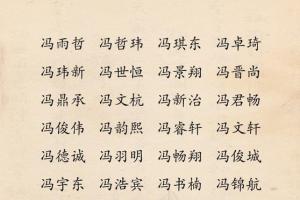 冯雨哲 冯哲玮 冯琪东 冯卓琦
冯玮新 冯世恒 冯景翔 冯晋尚
冯鼎承 冯文杭 冯新治 冯君畅
冯俊伟 冯韵熙 冯睿轩 冯文轩
冯德诚 冯羽明 冯畅翔 冯俊城
冯宇东 冯浩宾 冯书楠 冯锦航